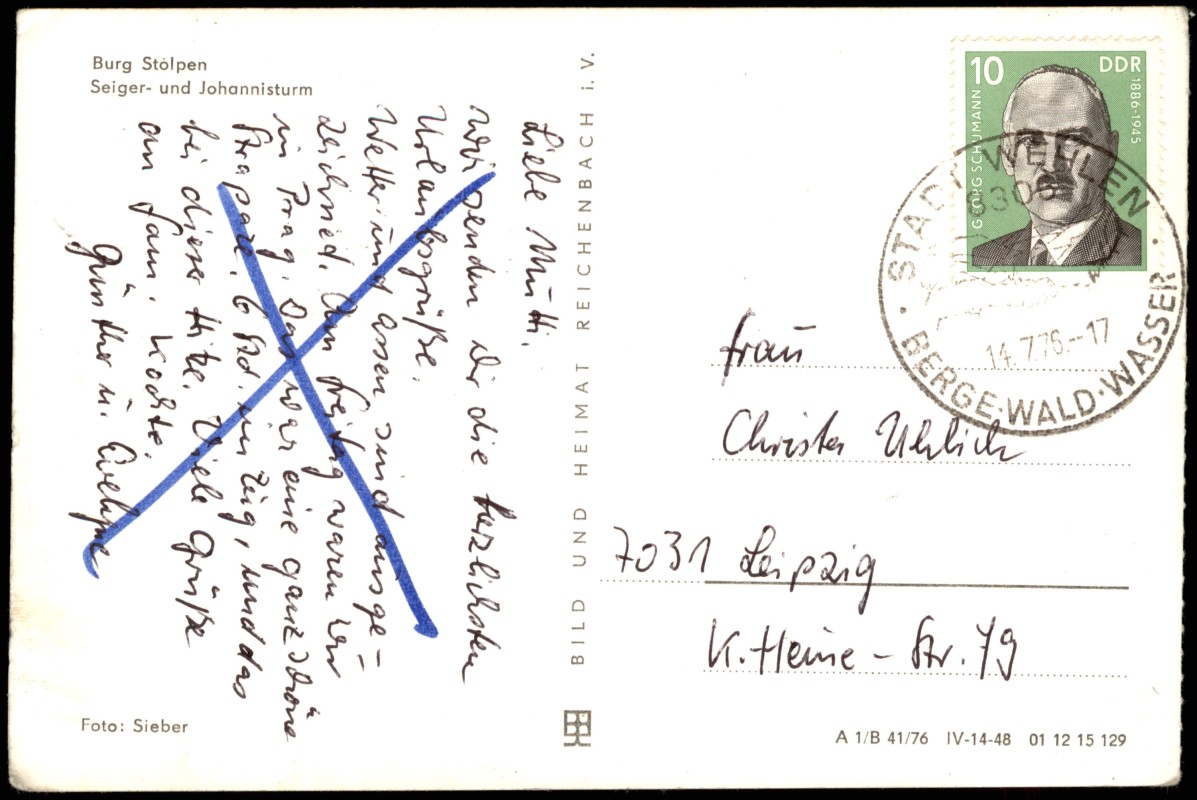 Burg Stolpen
Seiger- und Johannisturm
Liebe Mutti.
Wir senden Dir die herzlichsten
Urlaubsgrüße.
Wetter und Essen sind ausge=
zeichnet. Am Freitag waren wir
in Prag. Das war eine ganz schöne
Strapaze. 6 Std. im Zug, und das
bei dieser Hitze. Viele Grüße
an Fam. Kochte.
Günther u.
Foto: Sieber
BILD UND HEIMAT REICHENBACH i. V.
10 DDR
GEORG SCHUMANN 1886-1945
STADT WEHLEN
8305
14.7.76.-17
BERGE·WALD·WASSER
Frau
Christa Uhlich
7031 Leipzig
K.-Heine-Str. 79
A 1/B 41/76 IV-14-48 01 12 15 129